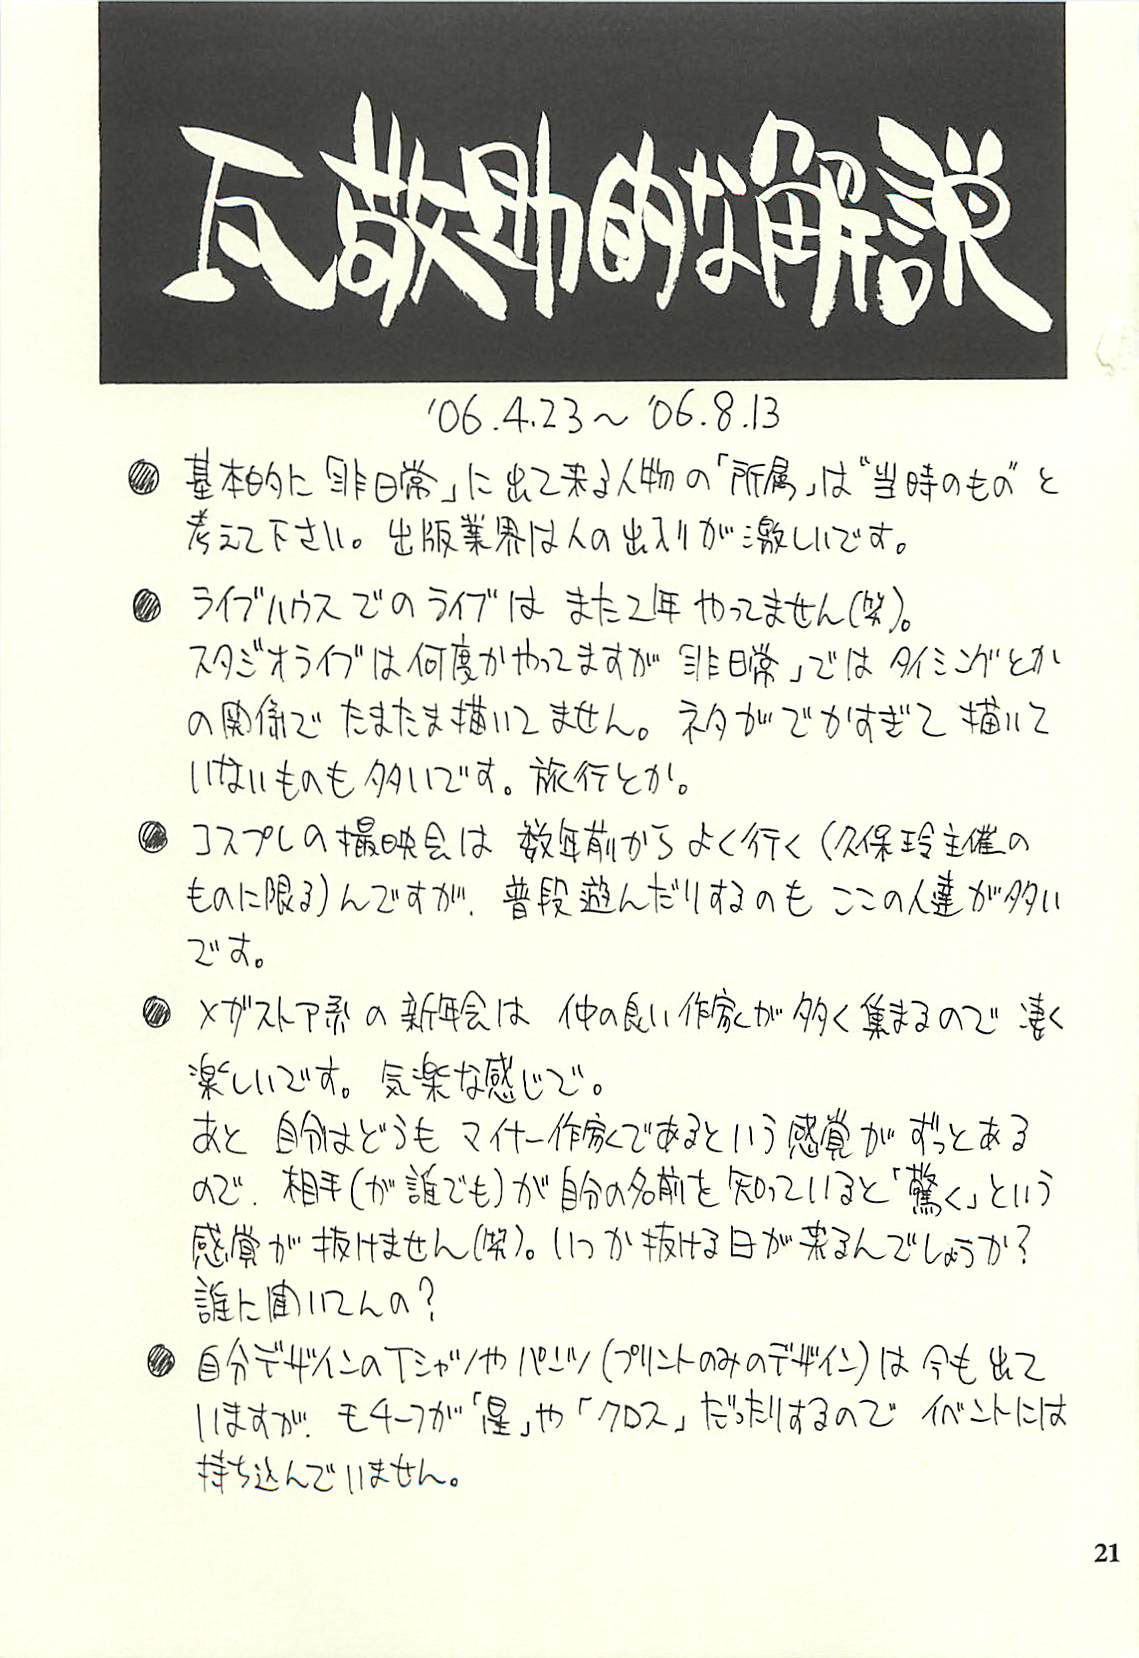 瓦敬助的な解説
'06.4.23～'06.8.13
●基本的に「非日常」に出て来る人物の「所属」は"当時のもの"と
考えて下さい。出版業界は人の出入りが激しいです。
●ライブハウスでのライブはまた21年やってません(笑)。
スタジオライブは何度かやってますが「非日常」ではタイミングとか
の関係でたまたま描いてません。ネタがでかすぎて描いて
いないものも多いです。旅行とか。
●コスプレの撮映会は数年前からよく行く(久保玲主催の
ものに限る)んですが、普段遊んだりするのもここの人達が多い
です。
●メガストア系の新年会は仲の良い作家が多く集まるので凄く
楽しいです。気楽な感じで。
あと自分はどうもマイナー作家であるという感覚がずっとある
ので、相手(が誰でも)が自分の名前を知っていると「驚く」という
感覚が抜けません(笑)。いつか抜ける日が来るんでしょうか?
誰に聞いてんの?
●自分デザインのTシャツやパンツ(プリントのみのデザイン)は今も出て
いますが、モチーフが「星」や「クロス」だったりするのでイベントには
持ち込んでいません。
21